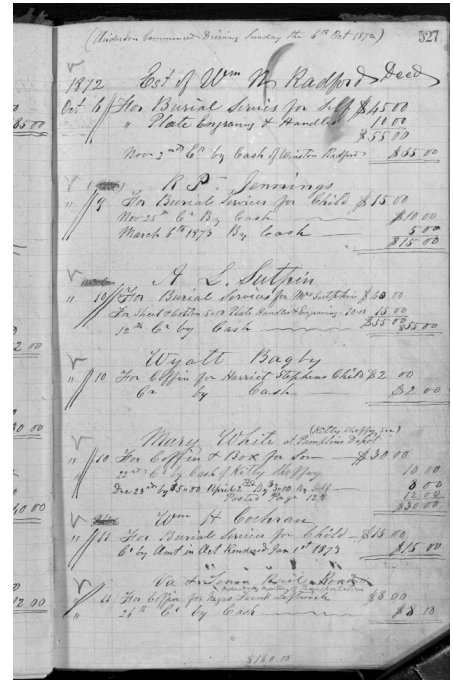 (Anderson Commenced Driving Sunday the 6th Oct 1872) 327
1872 Est of Wm R Radford Deed
Oct 6 For Burial Services for Self $45 00
" Plate Engraving & Handles 10 00
$55 00
Nov 2nd Cr by Cash of Winston Radford $55 00
R P Jennings
" 9 For Burial Services for Child $15 00
Nov 25th Cr By Cash $10 00
March 6th 1873 By Cash 5 00
$15 00
A L Sutpin
" 10 For Burial Services for Mrs Sutphin $40 00
For Sheet & Cotton 5.00 Plate Handles & Engraving 10.00 15 00
12th Cr by Cash $55 00 $55 00
Wyatt Bagby
" 10 For Coffin for Harriet Stephens Child $2 00
Cr by Cash $2 00
Mary White at Pamplins Depot
" 10 For Coffin & Box for Son $30 00
22nd Cr by Cash of Kitty 10 00
Dec 23rd by $5.00 April 7th By $3.00 By Self 8 00
Posted Page 128 12 00
$30 00
Wm H Cochran
" 11 For Burial Services for Child $15 00
Cr by Amt in Act Rendered Jan 1st 1873 $15 00
Va & Tenn
" 11 For Coffin for Negro Frank $8 00
" 26th Cr by Cash $8 00
$180.10
85 00
2 00
30 00
40 00
2 00